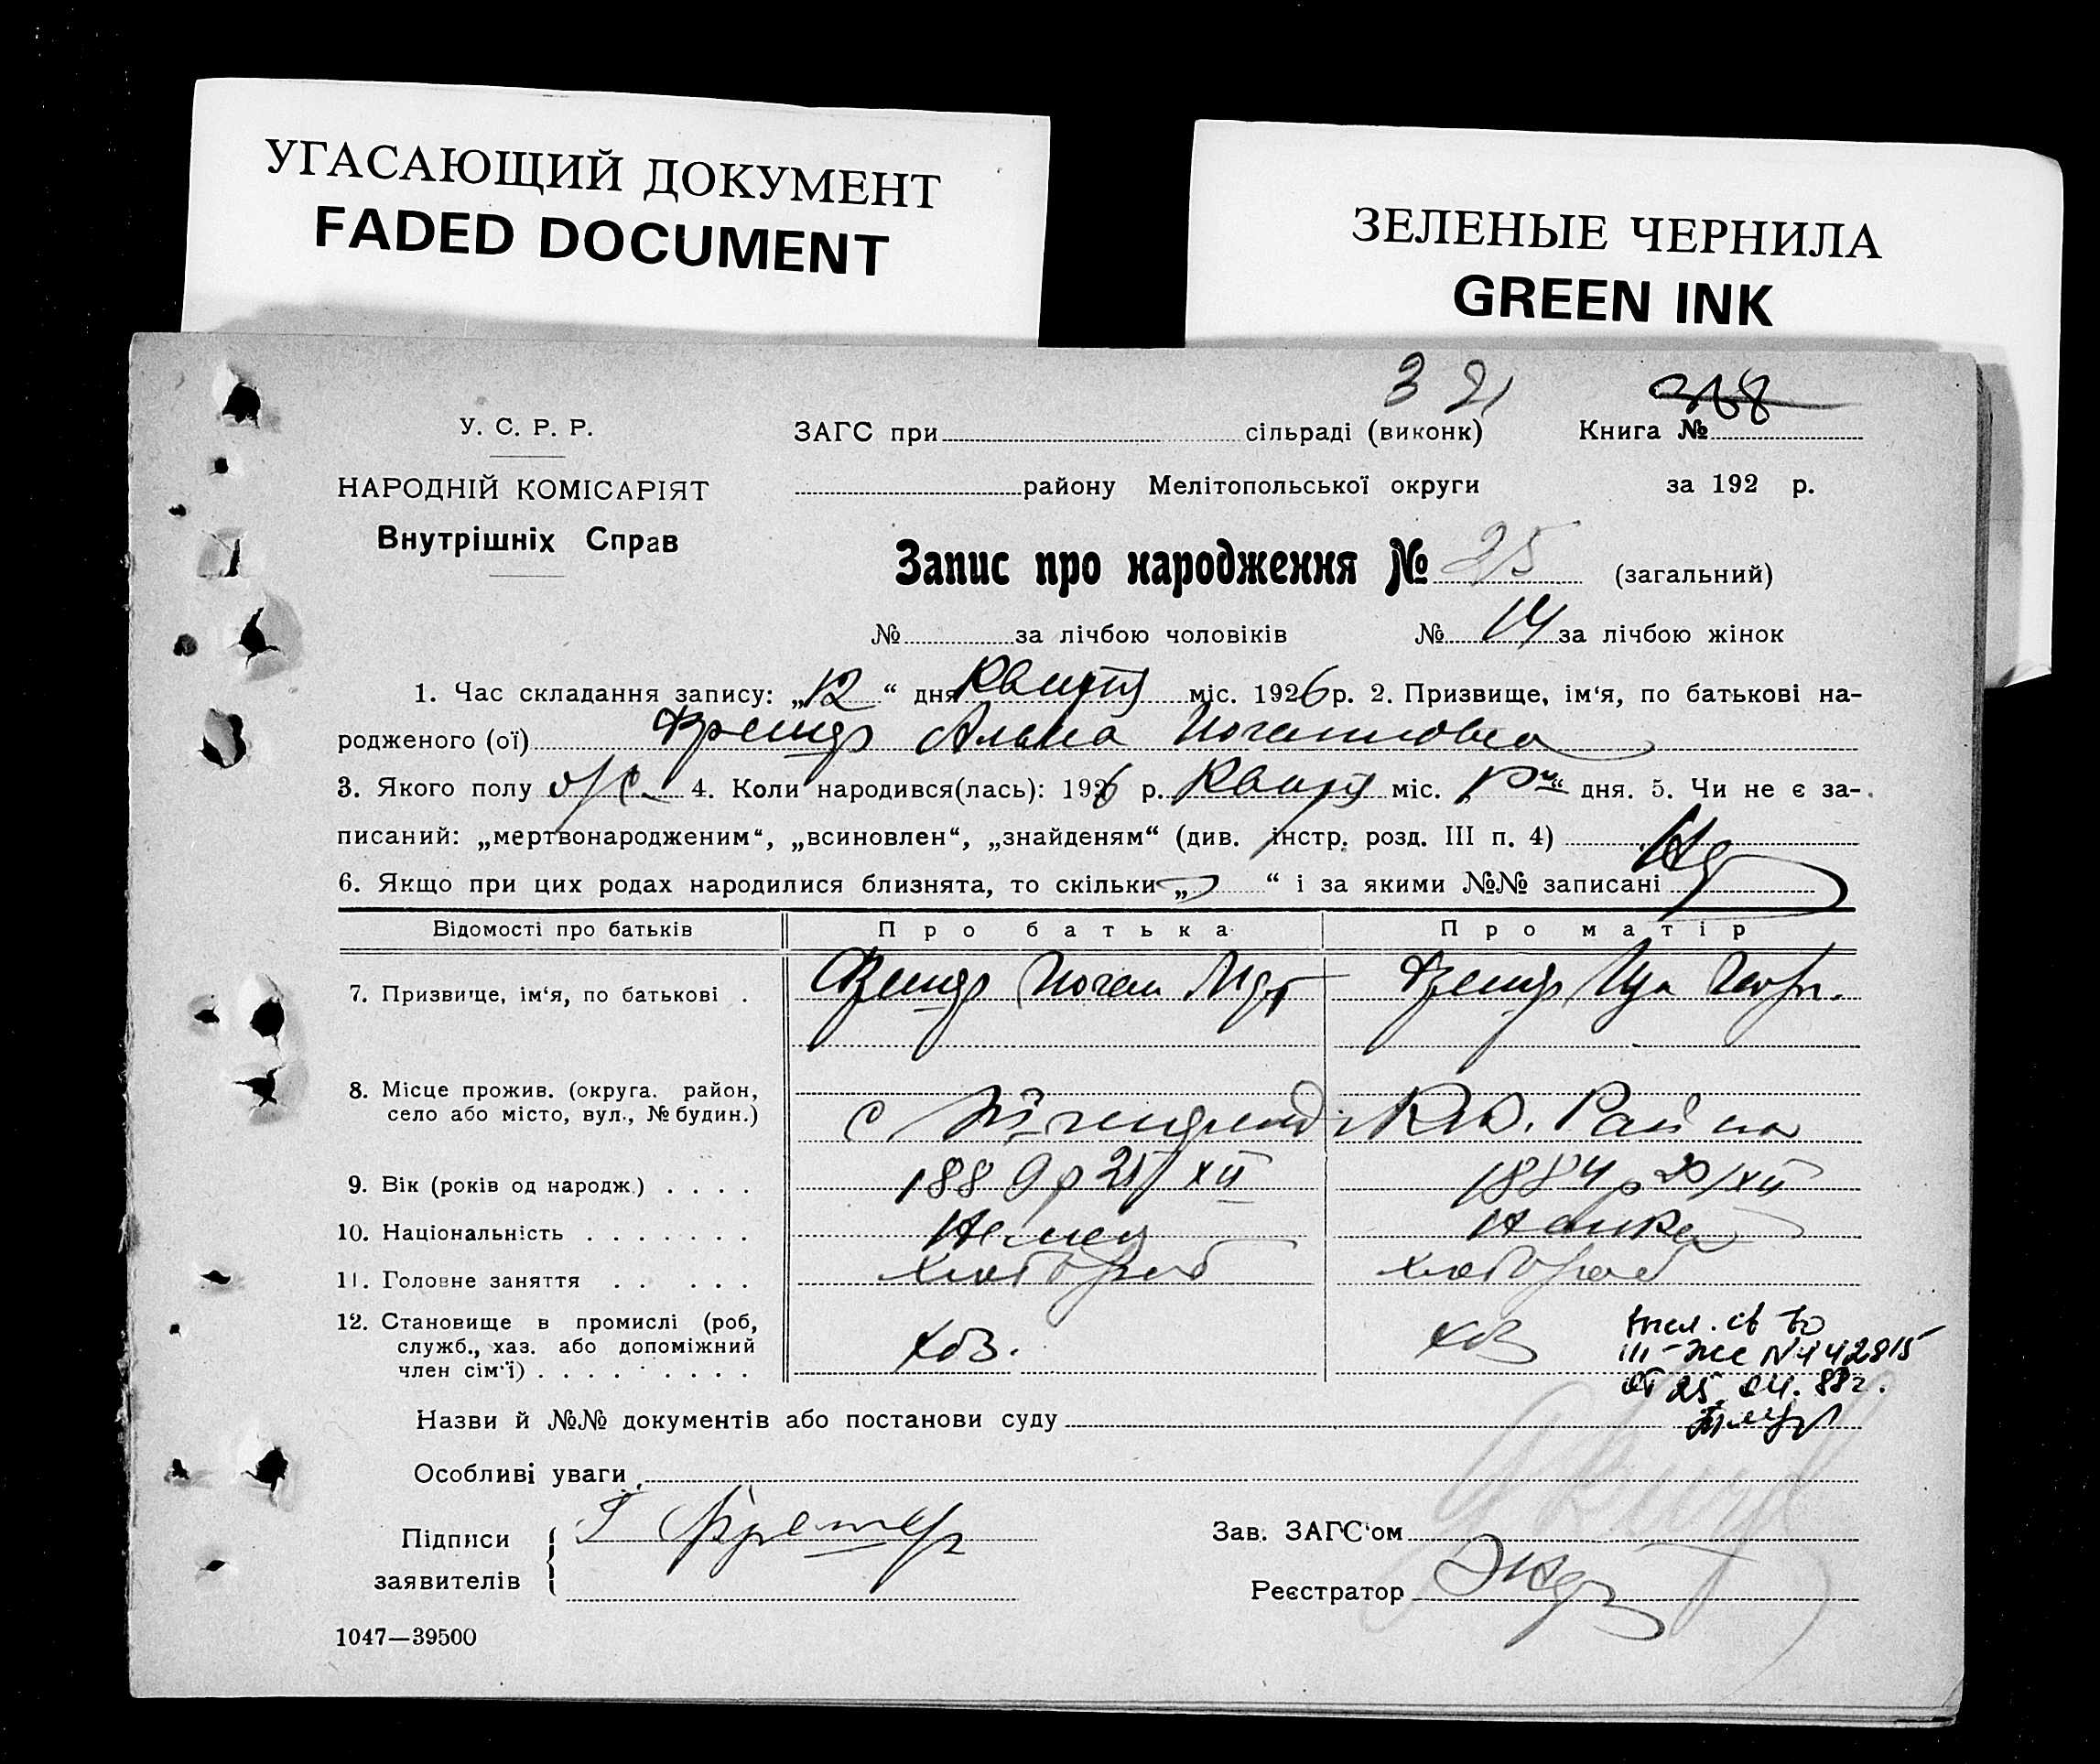 УГАСАЮЩИЙ ДОКУМЕНТ
FADED DOCUMENT
ЗЕЛЕНЫЕ ЧЕРНИЛА
GREEN INK
3 21
368
У. С. Р. Р.
ЗАГС при сільраді (виконк) Книга №
НАРОДНІЙ КОМІСАРІЯТ
району Мелітопольської округи за 192 р.
Внутрішніх Справ
Запис про народження № 25 (загальний)
№ за лічбою чоловіків № 14 за лічбою жінок
1. Час складання запису: „12“ дня Квітня міс. 1926 р. 2. Призвище, ім‘я, по батькові на-
родженого (ої) Альма
3. Якого полу ж. 4. Коли народився(лась): 1926 р. Квітня міс. дня. 5. Чи не є за-
писаний: „мертвонародженим“, „всиновлен“, „знайденям“ (див. інстр. розд. III п. 4)
6. Якщо при цих родах народилися близнята, то скільки „ “ і за якими №№ записані
Відомості про батьків Про батька Про матір
7. Призвище, ім‘я, по батькові .
8. Місце прожив. (округа. район,
село або місто, вул., № будин.)
с Района
9. Вік (років од народж.) . . . . 1889 р 25/XII 1884 р 20/XII
10. Національність . . . . . . . Немец
11. Головне заняття . . . . . хлебороб хлебороб
12. Становище в промислі (роб,
служб., хаз. або допоміжний
член сім‘ї) . . . . . . . . .
хоз. хоз
III-ЖС N 442815
от 25.04.88г.
Назви й №№ документів або постанови суду
Особливі уваги
Підписи
заявителів
Зав. ЗАГС‘ом
Реєстратор
1047—39500